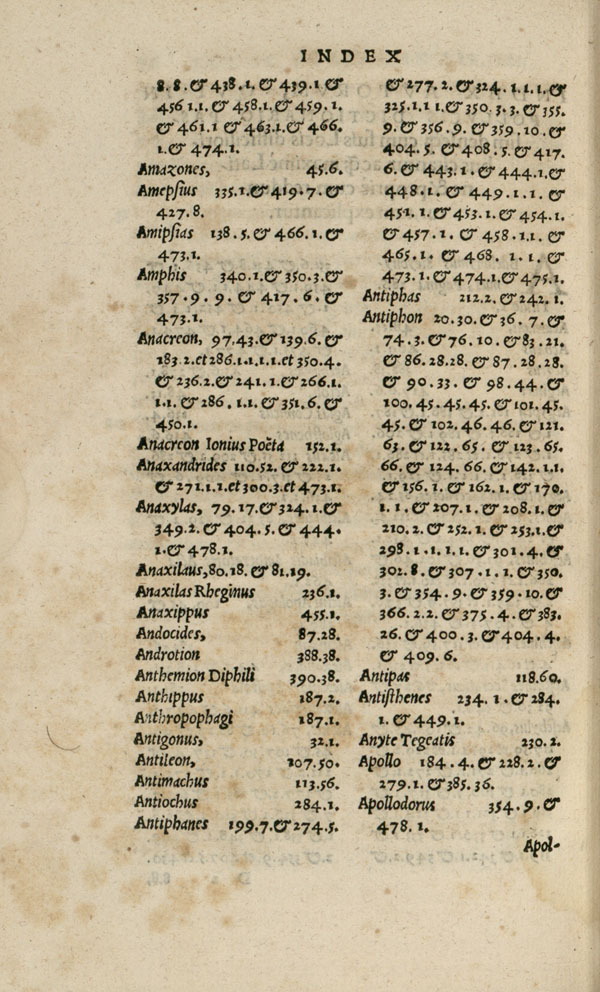 INDEX
8.8.& 438.1.& 439.1 &
456 1.1.& 458.1.& 459.1.
& 461.1 & 463.1.& 466.
1.& 474.1.
Amazones, 45.6.
Amepsius 335.1.& 419.7.&
427.8.
Amipsias 138.5.& 466.1.&
473.1.
Amphis 340.1.& 350.3.&
357.9.9.& 417.6.&
473.1.
Anacreon, 97.43.& 139.6.&
183 2.et 286.1.1.1.1.et 350.4.
& 236.2.& 241.1.& 266.1.
1.1.& 286.1.1.& 351.6.&
450.1.
Anacreon Ionius Poëta 152.1.
Anaxandrides 110.52.& 222.1.
& 271.1.1.et 300.3.et 473.1.
Anaxylas, 79.17.& 324.1.&
349.2.& 404.5.& 444.
1.& 478.1.
Anaxilaus, 80.18.& 81.19.
Anaxilas Rheginus 236.1.
Anaxippus 455.1.
Andocides, 87.28.
Androtion 388.38.
Anthemion Diphili 390.38.
Anthippus 187.2.
Anthropophagi 187.1.
Antigonus, 32.1.
Antileon, 107.50.
Antimachus 113.56.
Antiochus 284.1.
Antiphanes 199.7.& 274.5.
& 277.2.& 324.1.1.1.&
325.1.1 1.& 350.3.3.& 355.
9.& 356.9.& 359.10.&
404.5.& 408.5.& 417.
6.& 443.1.& 444.1.&
448.1.& 449.1.1.&
451.1.& 453.1.& 454.1.
& 457.1.& 458.1.1.&
465.1.& 468.1.1.&
473.1.& 474.1.& 475.1.
Antiphas 212.2.& 242.1.
Antiphon 20.30.& 36.7.&
74.3.& 76.10.& 83.21.
& 86.28.28.& 87.28.28.
& 90.33.& 98.44.&
100.45.45.45.& 101.45.
45.& 102.46.46.& 121.
63.& 122.65.& 123.65.
66.& 124.66.& 142.1.1.
& 156.1.& 162.1.& 170.
1.1.& 207.1.& 208.1.&
210.2.& 252.1.& 253.1.&
298.1.1.1.1.& 301.4.&
302.8.& 307.1.1.& 350.
3.& 354.9.& 359.10.&
366.2.2.& 375.4.& 383.
26.& 400.3.& 404.4.
& 409.6.
Antipas 118.60.
Antisthenes 234.1.& 284.
1.& 449.1.
Anyte Tegeatis 230.2.
Apollo 184.4.& 228.2.&
279.1.& 385.36.
Apollodorus 354.9.&
478.1.
Apol-